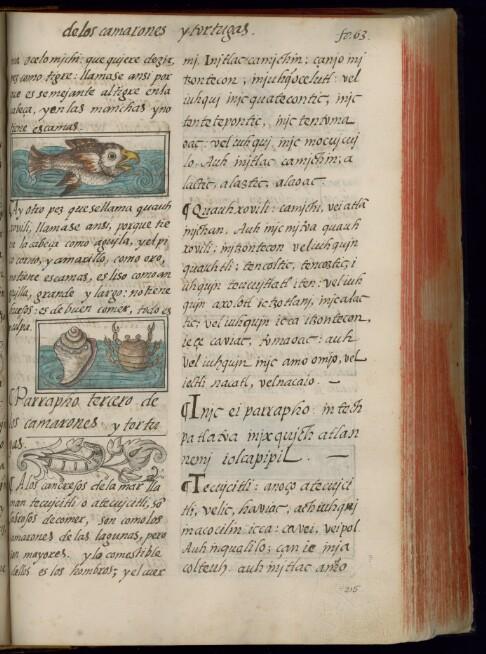 de los camarones y tortugas. fo. 63.
ma ocelomjchi: que quiere dezir,
pez como tigre: llamase ansi por
que es semejante al tigre en la
cabeça, y en las manchas y no
tiene escamas.
Ay otro pez que se llama quauh
xovili, llamase ansi, porque tie
ne la cabeça como aguyla, y el pi
co corvo, y amarillo, como oro,
no tiene escamas, es liso como an
guilla, grande y largo: no tiene
huesos: es de buen comer, todo es
pulpa.
Parrapho tercero de
los camarones y tortu
gas.
A los cangresos de la mar lla
man tecujcitli o atecujcitli, so
sabrosos de comer, son como los
camarones de las lagunas, pero
son mayores, y lo comestible
dellos es los hombros; y el cuer
mj. Injtlac camjchin: canjo mj
tzontecon, injuhqujocelutl: vel
iuhquj injc quatecontic, injc
tentetepontic, injc tentzona
oac: vel iuhquj injc mocujcuj
lo. Auh injtlac camjchin, a
lactic, alaztic, alaoac.
¶ Quauhxovili: camjchi, vei atla
mjchan. Auh injc mjtoa quauh
xovili: injtzontecon vel iuhqujn
quauhtli; tencoltic, tencoztic, i
uhqujn teucujtlatl iten: vel iuh
qujn axolotl ic tzotlanj, injc alac
tic; vel iuhqujn icca itzontecon,
ieçe caviac, tomaoac: auh
vel iuhqujn injc amo omijo, vel
ixtli nacatl, vel nacaio. —
¶ Injc ei parrapho: in tech
pa tlatoa in jxqujch atlan
nemj iolcapipil. —
¶ Tecujcitli: anoço atecujci
tli, velic, haviac, aeh iuhquj
in acocilin icca: ca vei, vei pol.
Auh in qualilo; can ie inja
colteuh. auh injtlac amo
215